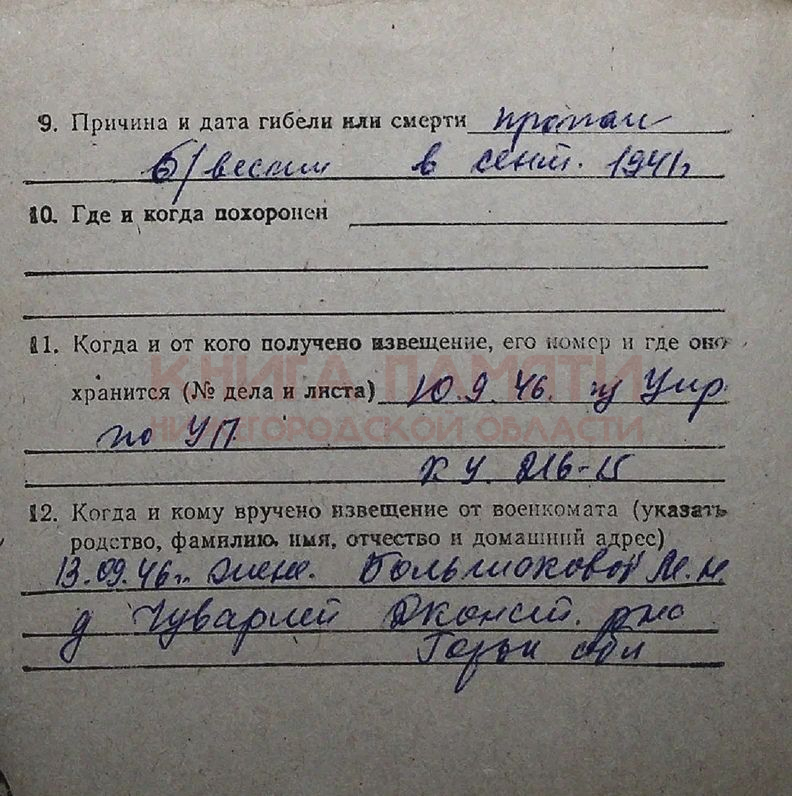 9. Причина и дата гибели или смерти пропал
б/вести в сент. 1941г
10. Где и когда похоронен
11. Когда и от кого получено извещение, его номер и где оно
КНИГА ПАМЯТИ
хранится (№ дела и листа) 10.9.46. из Упр
по УП
НИЖЕГОРОДСКОЙ ОБЛАСТИ
216-15
12. Когда и кому вручено извещение от военкомата (указать
родство, фамилию, имя, отчество и домашний адрес)
13.09.46г. жене. Большаковой М.Н.
д Чуварлей Дконст. рно
Горьк обл